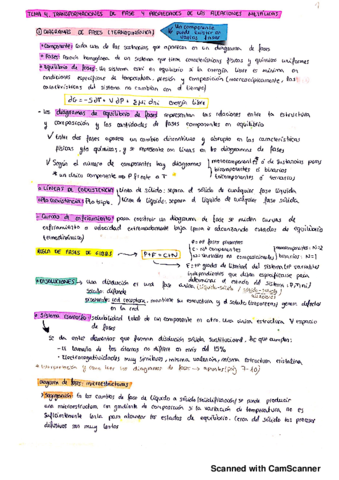 TEMA 4. TRANSFORMACIONES DE FASE Y PROPIEDADES DE LAS ALEACIONES METÁLICAS
① DIAGRAMAS DE FASES (TERMODINÁMICA)
Un componente puede existir en varias fases
* Componente: cada una de las sustancias que aparecen en un diagrama de fases
* Fases: Porción homogénea de un sistema que tiene características físicas y químicas uniformes
* Equilibrio de fases: un sistema está en equilibrio si la energía libre es mínima en
condiciones específicas de temperatura, presión y composición (macroscópicamente, las
características del sistema no cambian con el tiempo)
dG = -SdT + VdP + Σμi dni Energía libre
- Los diagramas de equilibrio de fases representan las relaciones entre la estructura,
y composición y las cantidades de fases componentes en equilibrio
✓ Entre dos fases aparece un cambio discontinuo y abrupto en las características
físicas y/o químicas, y se representa con líneas en los diagramas de fases
✓ Según el número de componentes hay diagramas
monocomponentes ó de sustancias puras
bicomponentes ó binarios
ó ternarios
* un único componente → P frente a T
* LÍNEAS DE COEXISTENCIA
Línea de sólido: separa el sólido de cualquier fase líquida.
Línea de líquido: separa el líquido de cualquier fase sólida.
- Curvas de enfriamiento: para construir un diagrama de fase se miden curvas de
enfriamiento a velocidad extremadamente baja (para ir alcanzando estados de equilibrio
termodinámico)
REGLA DE FASES DE GIBBS
P+F = C+N
P = nº fases presentes
C = nº componentes
F = nº grados de libertad del sistema (nº variables
independientes que deben especificarse para
determinar el estado del sistema: P, T, ni)
* DISOLUCIONES
una disolución es una fase
sólido difunde
mantiene su estructura y el soluto (impurezas) genera defectos
en la red
* Sistema isomorfo: solubilidad total de un componente en otro. Una única estructura y espacio
de fases
Se dan entre elementos que forman disolución sólida sustitucional. Se que cumplen:
- El tamaño de los átomos no difiera en más del 15%
- Electronegatividades muy similares, misma valencia, misma estructura cristalina
Diagrama de fases: microestructuras
* Segregación: En los cambios de fase de líquido a sólido (solidificación) se puede producir
una microestructura con gradiente de composición si la variación de temperatura no es
suficientemente lenta para alcanzar los estados de equilibrio. Cerca del sólido los procesos
difusivos son muy lentos
Scanned with CamScanner